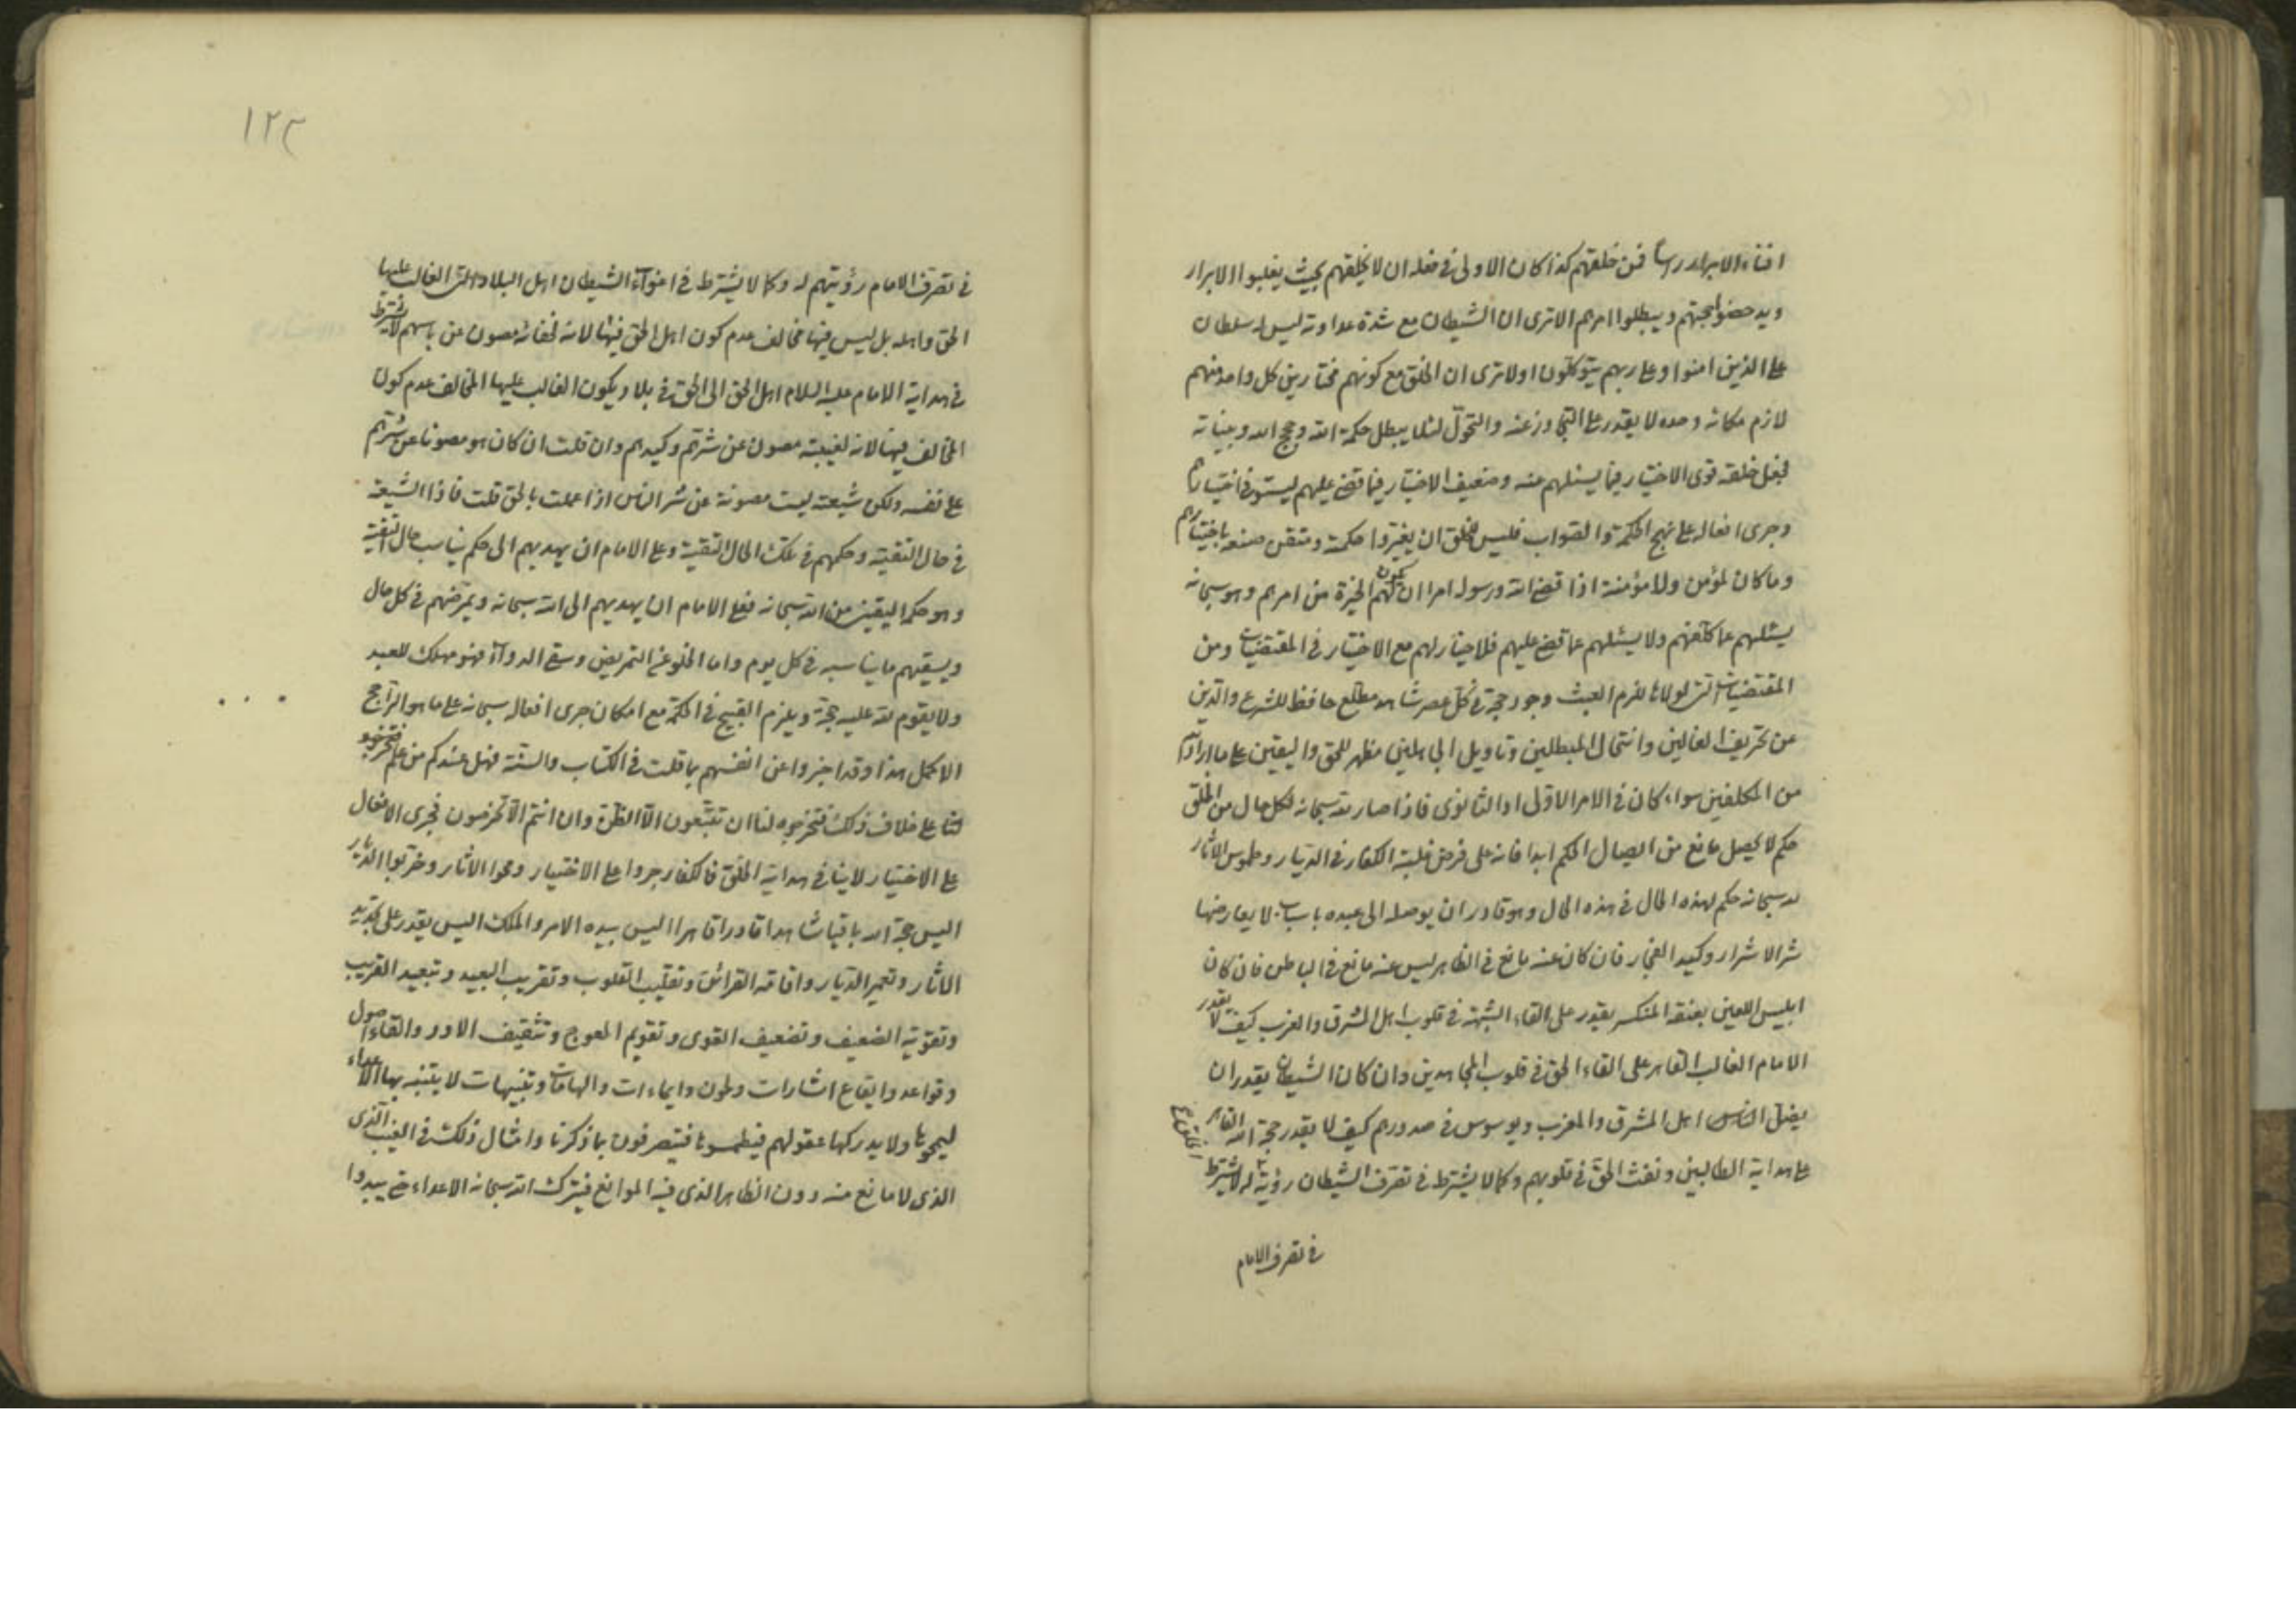 افناء الابرار رأسا فمن خلقهم كذا كان الاولى فى فعله ان لا يخلقهم بحيث يغلبوا الابرار
ويدحضوا حجتهم ويبطلوا امرهم الاترى ان الشيطان مع شدة عداوته ليس له سلطان
على الذين امنوا وعلى ربهم يتوكلون اولاترى ان الخلق مع كونهم مختارين كل واحد منهم
لازم مكانه وحده لا يقدر على التجاوز عنه والتحول لئلا يبطل حكمة الله وحجج الله وبيناته
فجعل خلقه قوى الاختيار فيما يسئلهم عنه وضعيف الاختيار فيما قضى عليهم ليستوفى اختيارهم
وجرى افعاله على نهج الحكمة والصواب فليس للخلق ان يغيروا حكمة ومتقن صنعه باختيارهم
وما كان لمؤمن ولا مؤمنة اذا قضى الله ورسوله امرا ان يكون لهم الخيرة من امرهم وهو سبحانه
يسئلهم عما كلفهم ولا يسئلهم عما قضى عليهم فلا خيار لهم مع الاختيار فى المقتضيات ومن
المقتضيات التى لولاها للزم العبث وجود حجة فى كل عصر شاهد مطلع حافظ للشرع والدين
عن تحريف الغالين وانتحال المبطلين وتاويل الجاهلين مظهر للحق واليقين على ما اراد الله
من المكلفين سواء كان فى الامر الاولى او الثانوى فاذا صار لله سبحانه لكل حال من الخلق
حكم لا يحصل مانع من ايصال الحكم ابدا فانه على فرض غلبة الكفار فى الديار وطموس الاثار
لله سبحانه حكم لهذه الحال فى هذه الحال وهو قادر ان يوصله الى عبده باسباب لا يعارضها
شر الاشرار وكيد الفجار فان كان عنه مانع فى الظاهر ليس عنه مانع فى الباطن فان كان
ابليس اللعين بعنقه المنكسر يقدر على القاء الشبهة فى قلوب اهل الشرق والغرب كيف لا يقدر
الامام الغالب القاهر على القاء الحق فى قلوب المجاهدين وان كان الشيطان يقدر ان
يضل الناس اهل المشرق والمغرب ويوسوس فى صدورهم كيف لا يقدر حجة الله القاهر
على هداية الطالبين ونفث الحق فى قلوبهم وكما لا يشترط فى تصرف الشيطان رؤيته له لا يشترط
فى تصرف الامام
١٢٢
فى تصرف الامام رؤيتهم له وكما لا يشترط فى اغواء الشيطان اهل البلاد التى الغالب عليها
الحق واهله بل ليس فيها مخالف عدم كون اهل الحق فيها لانه لخفائه مصون عن باسهم لا يشترط
فى هداية الامام عليه السلام اهل الحق الى الحق فى بلاد يكون الغالب عليها المخالف عدم كون
المخالف فيها لانه لغيبته مصون عن شرهم وكيدهم وان قلت ان كان هو مصونا عن شرهم
على نفسه ولكن شيعته ليست مصونة عن شر الناس اذا عملت بالحق قلت فاذا الشيعة
فى حال التقية وحكمهم فى تلك الحال التقية وعلى الامام ان يهديهم الى حكم يناسب حال التقية
وهو حكم اليقين من الله سبحانه فعلى الامام ان يهديهم الى الله سبحانه ويمرضهم فى كل حال
ويسقيهم ما يناسبه فى كل يوم واما الخلو عن التمريض وسقى الدواء فهو مهلك للعبد
ولا يقوم لله عليه حجة ويلزم القبيح فى الحكمة مع امكان جرى افعاله سبحانه على ما هو الراجح
الاكمل هذا وقد اخبروا عن انفسهم بما قلت فى الكتاب والسنة فهل عندكم من علم فتخرجوه
لنا على خلاف ذلك فتخرجوه لنا ان تتبعون الا الظن وان انتم الا تخرصون فجرى الافعال
على الاختيار لا ينافى هداية الخلق فالكفار جروا على الاختيار ومحوا الاثار وخربوا الديار
اليس حجة الله باقيا شاهدا قادرا قاهرا اليس بيده الامر والملك اليس يقدر على تجديد
الاثار وتعمير الديار واقامة القرائن وتقليب القلوب وتقريب البعيد وتبعيد القريب
وتقوية الضعيف وتضعيف القوى وتقويم المعوج وتثقيف الاود والقاء اصول
وقواعد وايقاع اشارات وطون وايماءات والهامات وتنبيهات لا يتنبه بها الاعداء
ليمحوها ولا يدركها عقولهم فيطمسوها فيتصرفون بما ذكرنا وامثال ذلك فى الغيب الذى
الذى لا مانع منه دون الظاهر الذى فيه الموانع فيترك الله سبحانه الاعداء حتى يبدوا